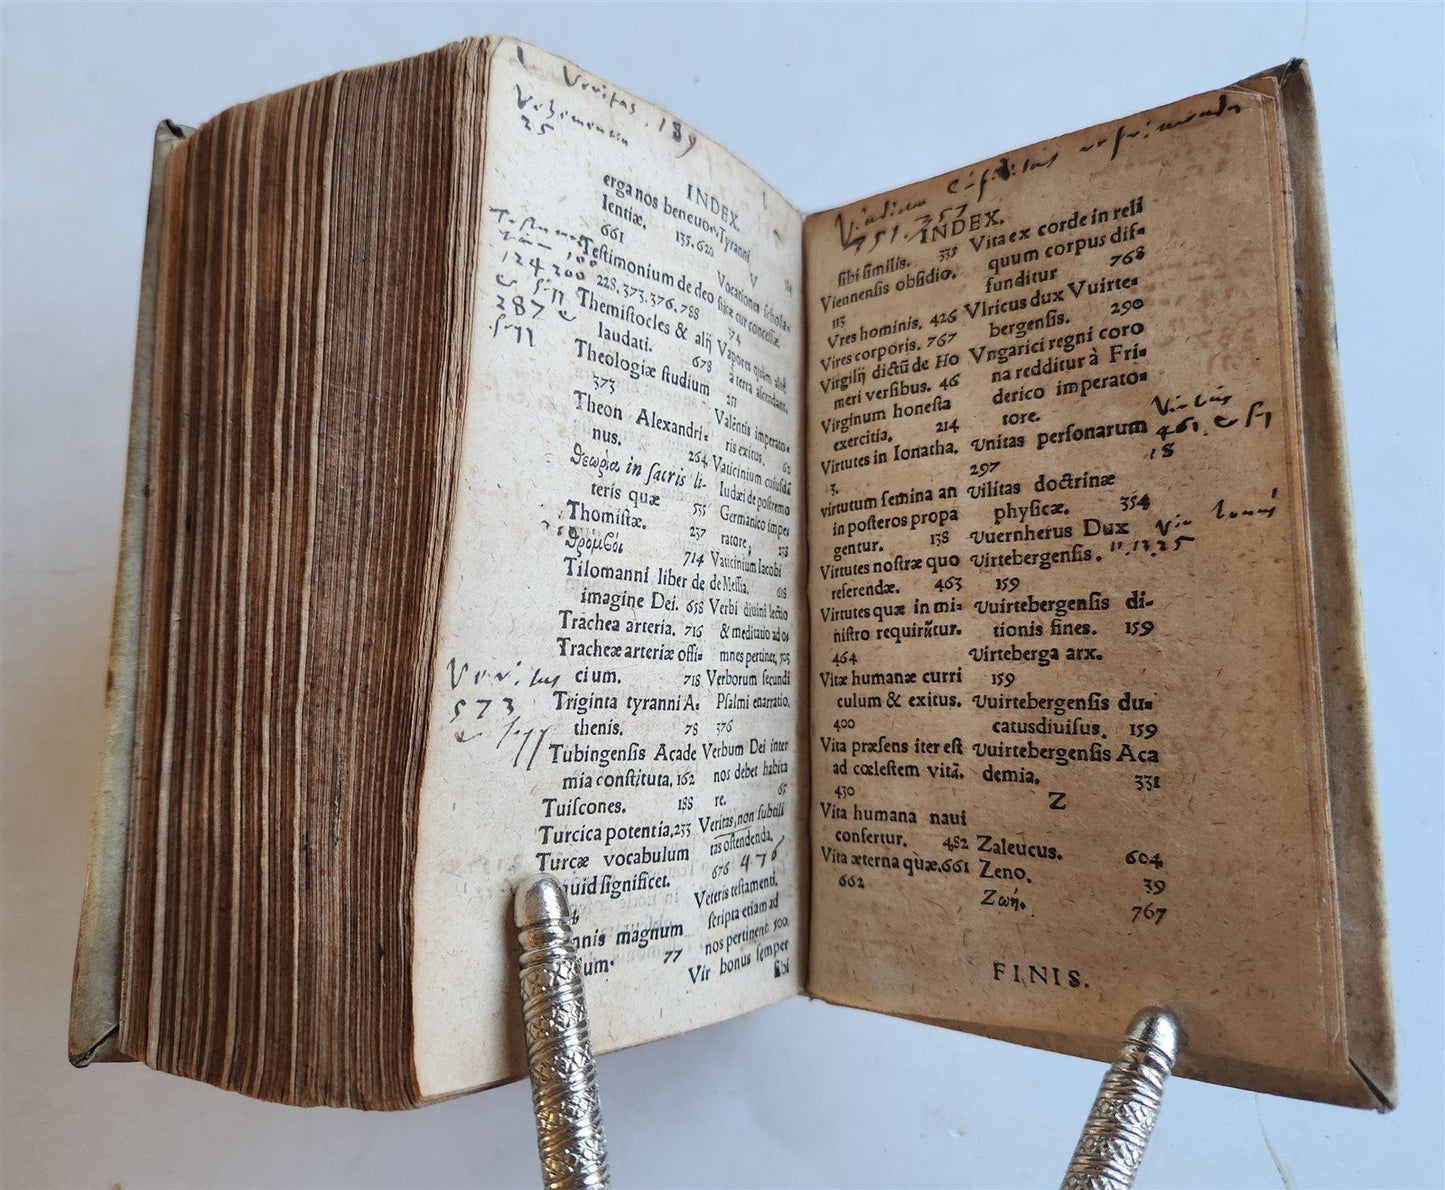 Veritas. 189
Vehementia
25
INDEX.
erga nos beneuo-
lentiæ. 135.620
661
Testimonium de deo
228.373.376.788
Themistocles & alij
laudati. 678
Theologiæ studium
373
Theon Alexandri-
nus. 264
θεωρία in sacris li-
teris quæ 535
Thomistæ. 237
θρόμβοι 714
Tilomanni liber de
imagine Dei. 658
Trachea arteria. 716
Tracheæ arteriæ offi-
cium. 718
Triginta tyranni A-
thenis. 78
Tubingensis Acade
mia constituta. 162
Tuiscones. 188
Turcica potentia. 233
Turcæ vocabulum
quid significet.
magnum
77
Tyranni
V
Vocationes schola-
sticæ cur concessæ.
374
Vapores quàm altè
à terra ascendant.
211
Valentis imperato-
ris exitus. 62
Vaticinium cuiusdã
Iudæi de postremo
Germanico impe
ratore, 238
Vaticinium Iacobi
de Messia. 618
Verbi diuini lectio
& meditatio ad os
mnes pertinet. 503
Verborum secundi
Psalmi enarratio.
376
Verbum Dei inter
nos debet habita
re. 65
Veritas, non subtili
tas ostendenda.
676 476
Veteris testamenti,
scripta etiam ad
nos pertinent 500.
Vir bonus semper
sibi
124 200
287
Veritas
573
751.757
INDEX.
sibi similis. 335
Viennensis obsidio.
113
Vres hominis. 426
Vires corporis. 767
Virgilij dictũ de Ho
meri versibus. 46
Virginum honesta
exercitia. 214
Virtutes in Ionatha.
3.
virtutum semina an
in posteros propa
gentur. 138
Virtutes nostræ quo
referendæ. 463
Virtutes quæ in mi-
nistro requirũtur.
464
Vitæ humanæ curri
culum & exitus.
400
Vita præsens iter est
ad cœlestem vitã.
430
Vita humana naui
confertur. 482
Vita æterna quæ. 661
662
Vita ex corde in reli
quum corpus dif-
funditur 768
Vlricus dux Vuirte-
bergensis. 290
Vngarici regni coro
na redditur à Fri-
derico imperato-
tore.
Vnitas personarum
297
Vilitas doctrinæ
physicæ. 354
Vuernherus Dux
Virtebergensis.
159
Vuirtebergensis di-
tionis fines. 159
Virteberga arx.
159
Vuirtebergensis du-
catus diuisus. 159
Vuirtebergensis Aca
demia. 331
Z
Zaleucus. 604
Zeno. 39
Ζωή. 767
461.
18
11.13.25
FINIS.